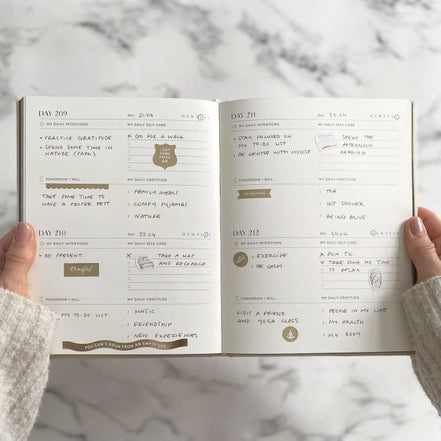 DAY 209
21.04
MY DAILY INTENTIONS
MY DAILY SELF-CARE
• PRACTICE GRATITUDE
• SPEND SOME TIME IN
NATURE (PARK)
X GO FOR A WALK
I GOT
SOME
FRESH
AIR
TOMORROW I WILL...
MY DAILY GRATITUDE
TAKE SOME TIME TO
HAVE A PROPER REST
FAMILY MEALS
COMFY PYJAMAS
NATURE
DAY 210
22.04
MY DAILY INTENTIONS
MY DAILY SELF-CARE
• BE PRESENT
Mindful
X TAKE A NAP
AND RECHARGE
TOMORROW I WILL...
MY DAILY GRATITUDE
MY TO-DO LIST
MUSIC
FRIENDSHIP
NEW EXPERIENCES
YOU CAN'T POUR FROM AN EMPTY CUP
DAY 211
MY DAILY INTENTIONS
MY DAILY SELF-CARE
• STAY FOCUSED ON
MY TO-DO LIST
• BE GENTLE WITH MYSELF
SPEND THE
AFTERNOON
READING
TOMORROW I WILL...
MY DAILY GRATITUDE
TEA
HOT SHOWER
BEING ALIVE
DAY 212
24.04
MY DAILY INTENTIONS
MY DAILY SELF-CARE
• EXERCISE
• BE CALM
X RUN 7K
X TAKE SOME ME TIME
TO RELAX
TOMORROW I WILL...
MY DAILY GRATITUDE
VISIT A FRIEND
AND YOGA CLASS
PEOPLE IN MY LIFE
MY HEALTH
MY BODY